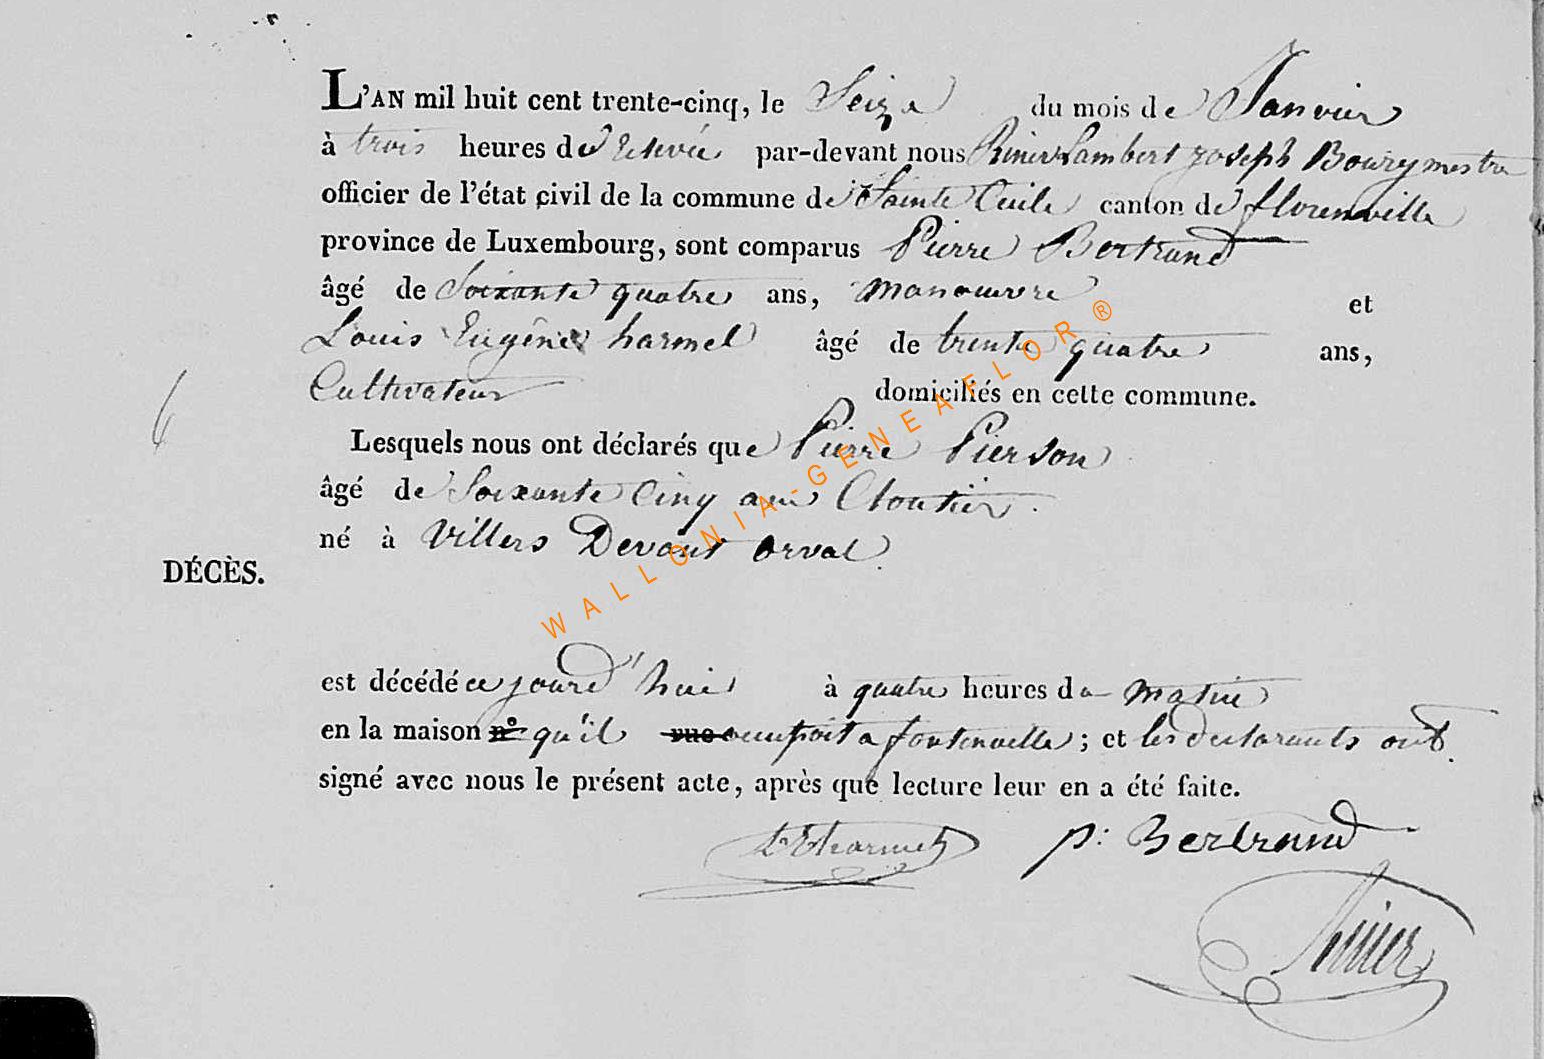 L'AN mil huit cent trente-cinq, le Seize du mois de Janvier
à trois heures de Relevée par-devant nous Rinier Lambert Joseph Bourgmestre
officier de l'état civil de la commune de Sainte Cecile canton de florenville
province de Luxembourg, sont comparus Pierre Bertrand
âgé de Soixante quatre ans, manoeuvre et
Louis Eugêne harmel âgé de trente quatre ans,
Cultivateur domiciliés en cette commune.
6
Lesquels nous ont déclarés que Pierre Pierson
âgé de Soixante Cinq ans Cloutier.
né à Villers Devant orval.
DÉCÈS.
est décédé ce jourd'hui à quatre heures du matin
en la maison n° qu'il rue occupoit a fontenoille ; et les déclarants ont
signé avec nous le présent acte, après que lecture leur en a été faite.
L. E harmel p: Bertrand
Rinier
WALLONIA-GENEAFLOR ®